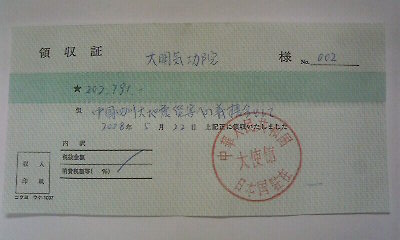 領収証 大囲気功院 様 No. 002
★ 202,791.-
但 中国四川大地震災害への義援金として
2008年 5月 22日 上記正に領収いたしました
内訳
税抜金額
消費税額等( %)
収入
印紙
コクヨ ウケ-1097
中華人民共和国
大使館
日本国駐在